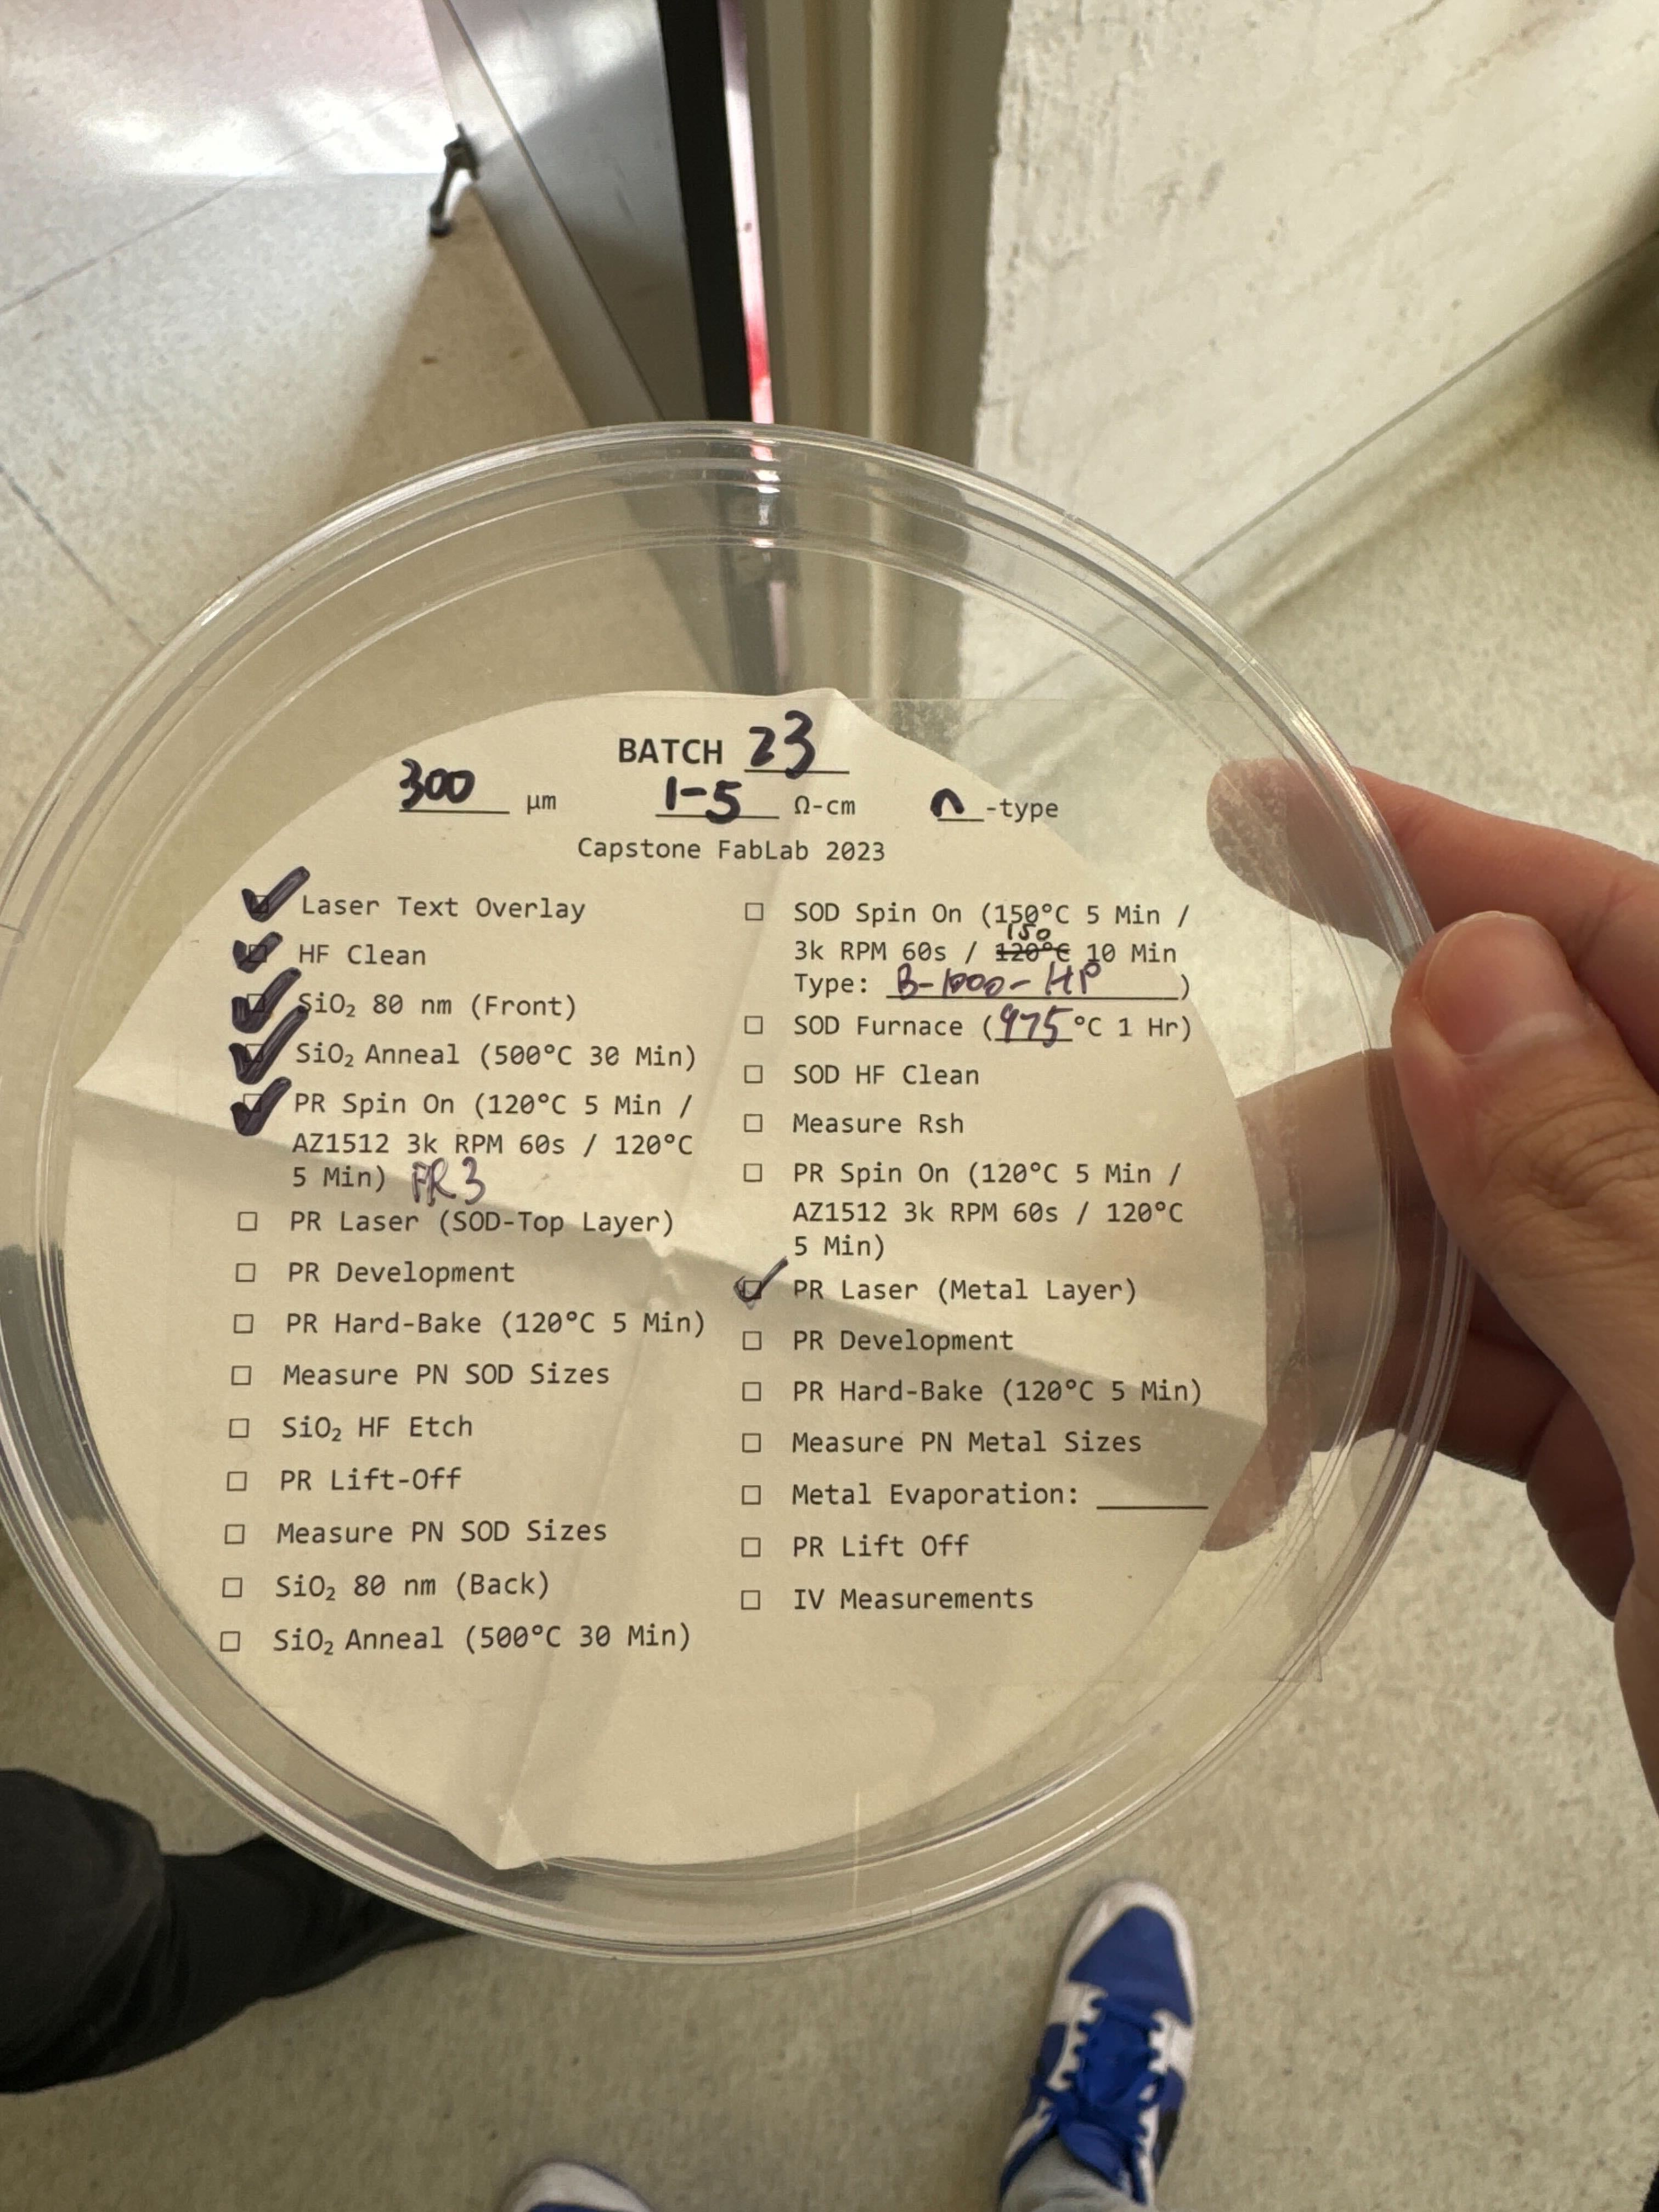 BATCH 23
300 µm 1-5 Ω-cm n-type
Capstone FabLab 2023
Laser Text Overlay
HF Clean
SiO₂ 80 nm (Front)
SiO₂ Anneal (500°C 30 Min)
PR Spin On (120°C 5 Min /
AZ1512 3k RPM 60s / 120°C
5 Min) PR3
PR Laser (SOD-Top Layer)
PR Development
PR Hard-Bake (120°C 5 Min)
Measure PN SOD Sizes
SiO₂ HF Etch
PR Lift-Off
Measure PN SOD Sizes
SiO₂ 80 nm (Back)
SiO₂ Anneal (500°C 30 Min)
SOD Spin On (150°C 5 Min /
150
3k RPM 60s / 120°C 10 Min
Type: B-1000-HP )
SOD Furnace (975°C 1 Hr)
SOD HF Clean
Measure Rsh
PR Spin On (120°C 5 Min /
AZ1512 3k RPM 60s / 120°C
5 Min)
PR Laser (Metal Layer)
PR Development
PR Hard-Bake (120°C 5 Min)
Measure PN Metal Sizes
Metal Evaporation: _______
PR Lift Off
IV Measurements